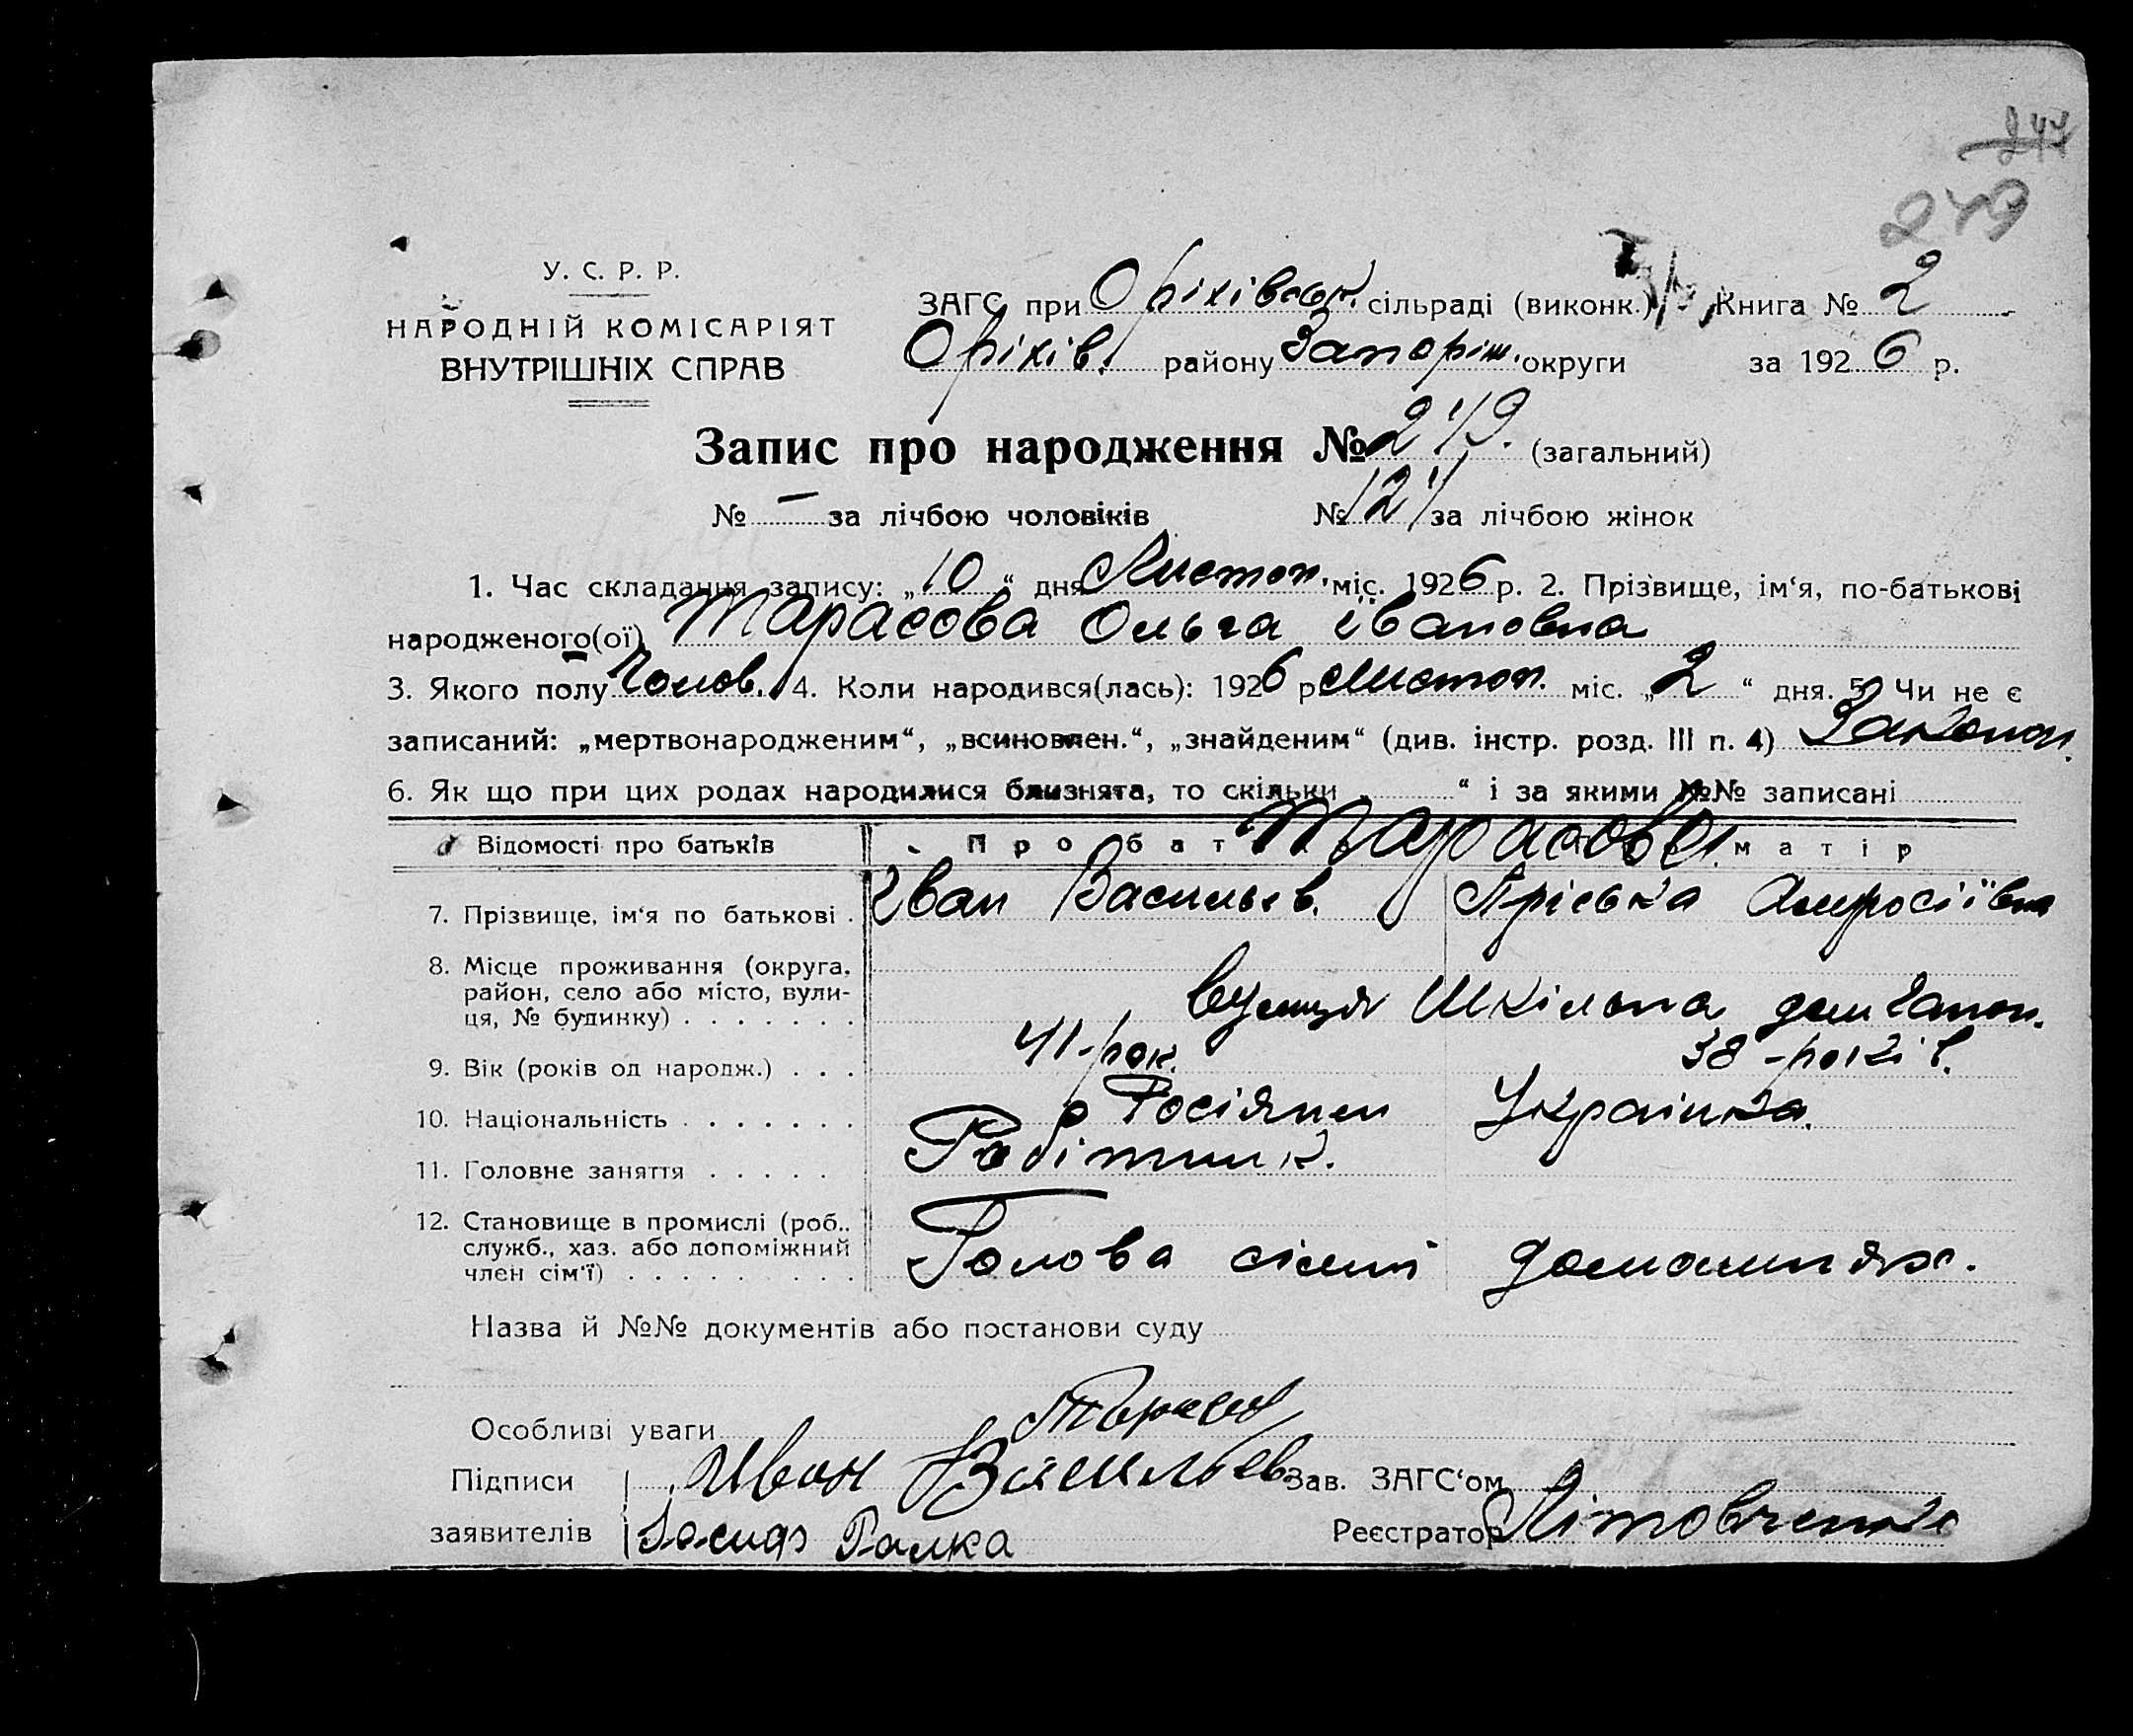 249
У. С. Р. Р.
НАРОДНІЙ КОМІСАРІЯТ
ВНУТРІШНІХ СПРАВ
ЗАГС при Оріхівськ. сільраді (виконк.) Книга № 2
Оріхів. району Запоріж. округи за 1926 р.
Запис про народження № 249. (загальний)
№ — за лічбою чоловіків № 124 за лічбою жінок
1. Час складання запису: „10“ дня Листоп. міс. 1926 р. 2. Прізвище, ім‘я, по-батькові
народженого(ої) Тарасова Ольга Івановна
3. Якого полу 4. Коли народився(лась): 1926 р Листоп. міс. „2“ дня. 5. Чи не є
записаний: „мертвонародженим“, „всиновлен.“, „знайденим“ (див. інстр. розд. III п. 4) Законн.
6. Як що при цих родах народилися близнята, то скільки „ “ і за якими №№ записані
Відомості про батьків Про бат Тарасови. матір
7. Прізвище, ім‘я по батькові . Іван Васильєв. Пріська Амросіївна
8. Місце проживання (округа,
район, село або місто, вули-
ця, № будинку) . . . . . . . вулиця Шкільна
9. Вік (років од народж.) . . . 41-рок. 38-років.
10. Національність . . . . . . . Росіянин Українка.
11. Головне заняття . . . . . Робітник.
12. Становище в промислі (роб.,
служб., хаз. або допоміжний
член сім‘ї) . . . . . . . . . Голова сімі домашняя.
Назва й №№ документів або постанови суду
Особливі уваги Тарасов
Підписи Иван Васильев Зав. ЗАГС‘ом
заявителів Реєстратор Літовченко